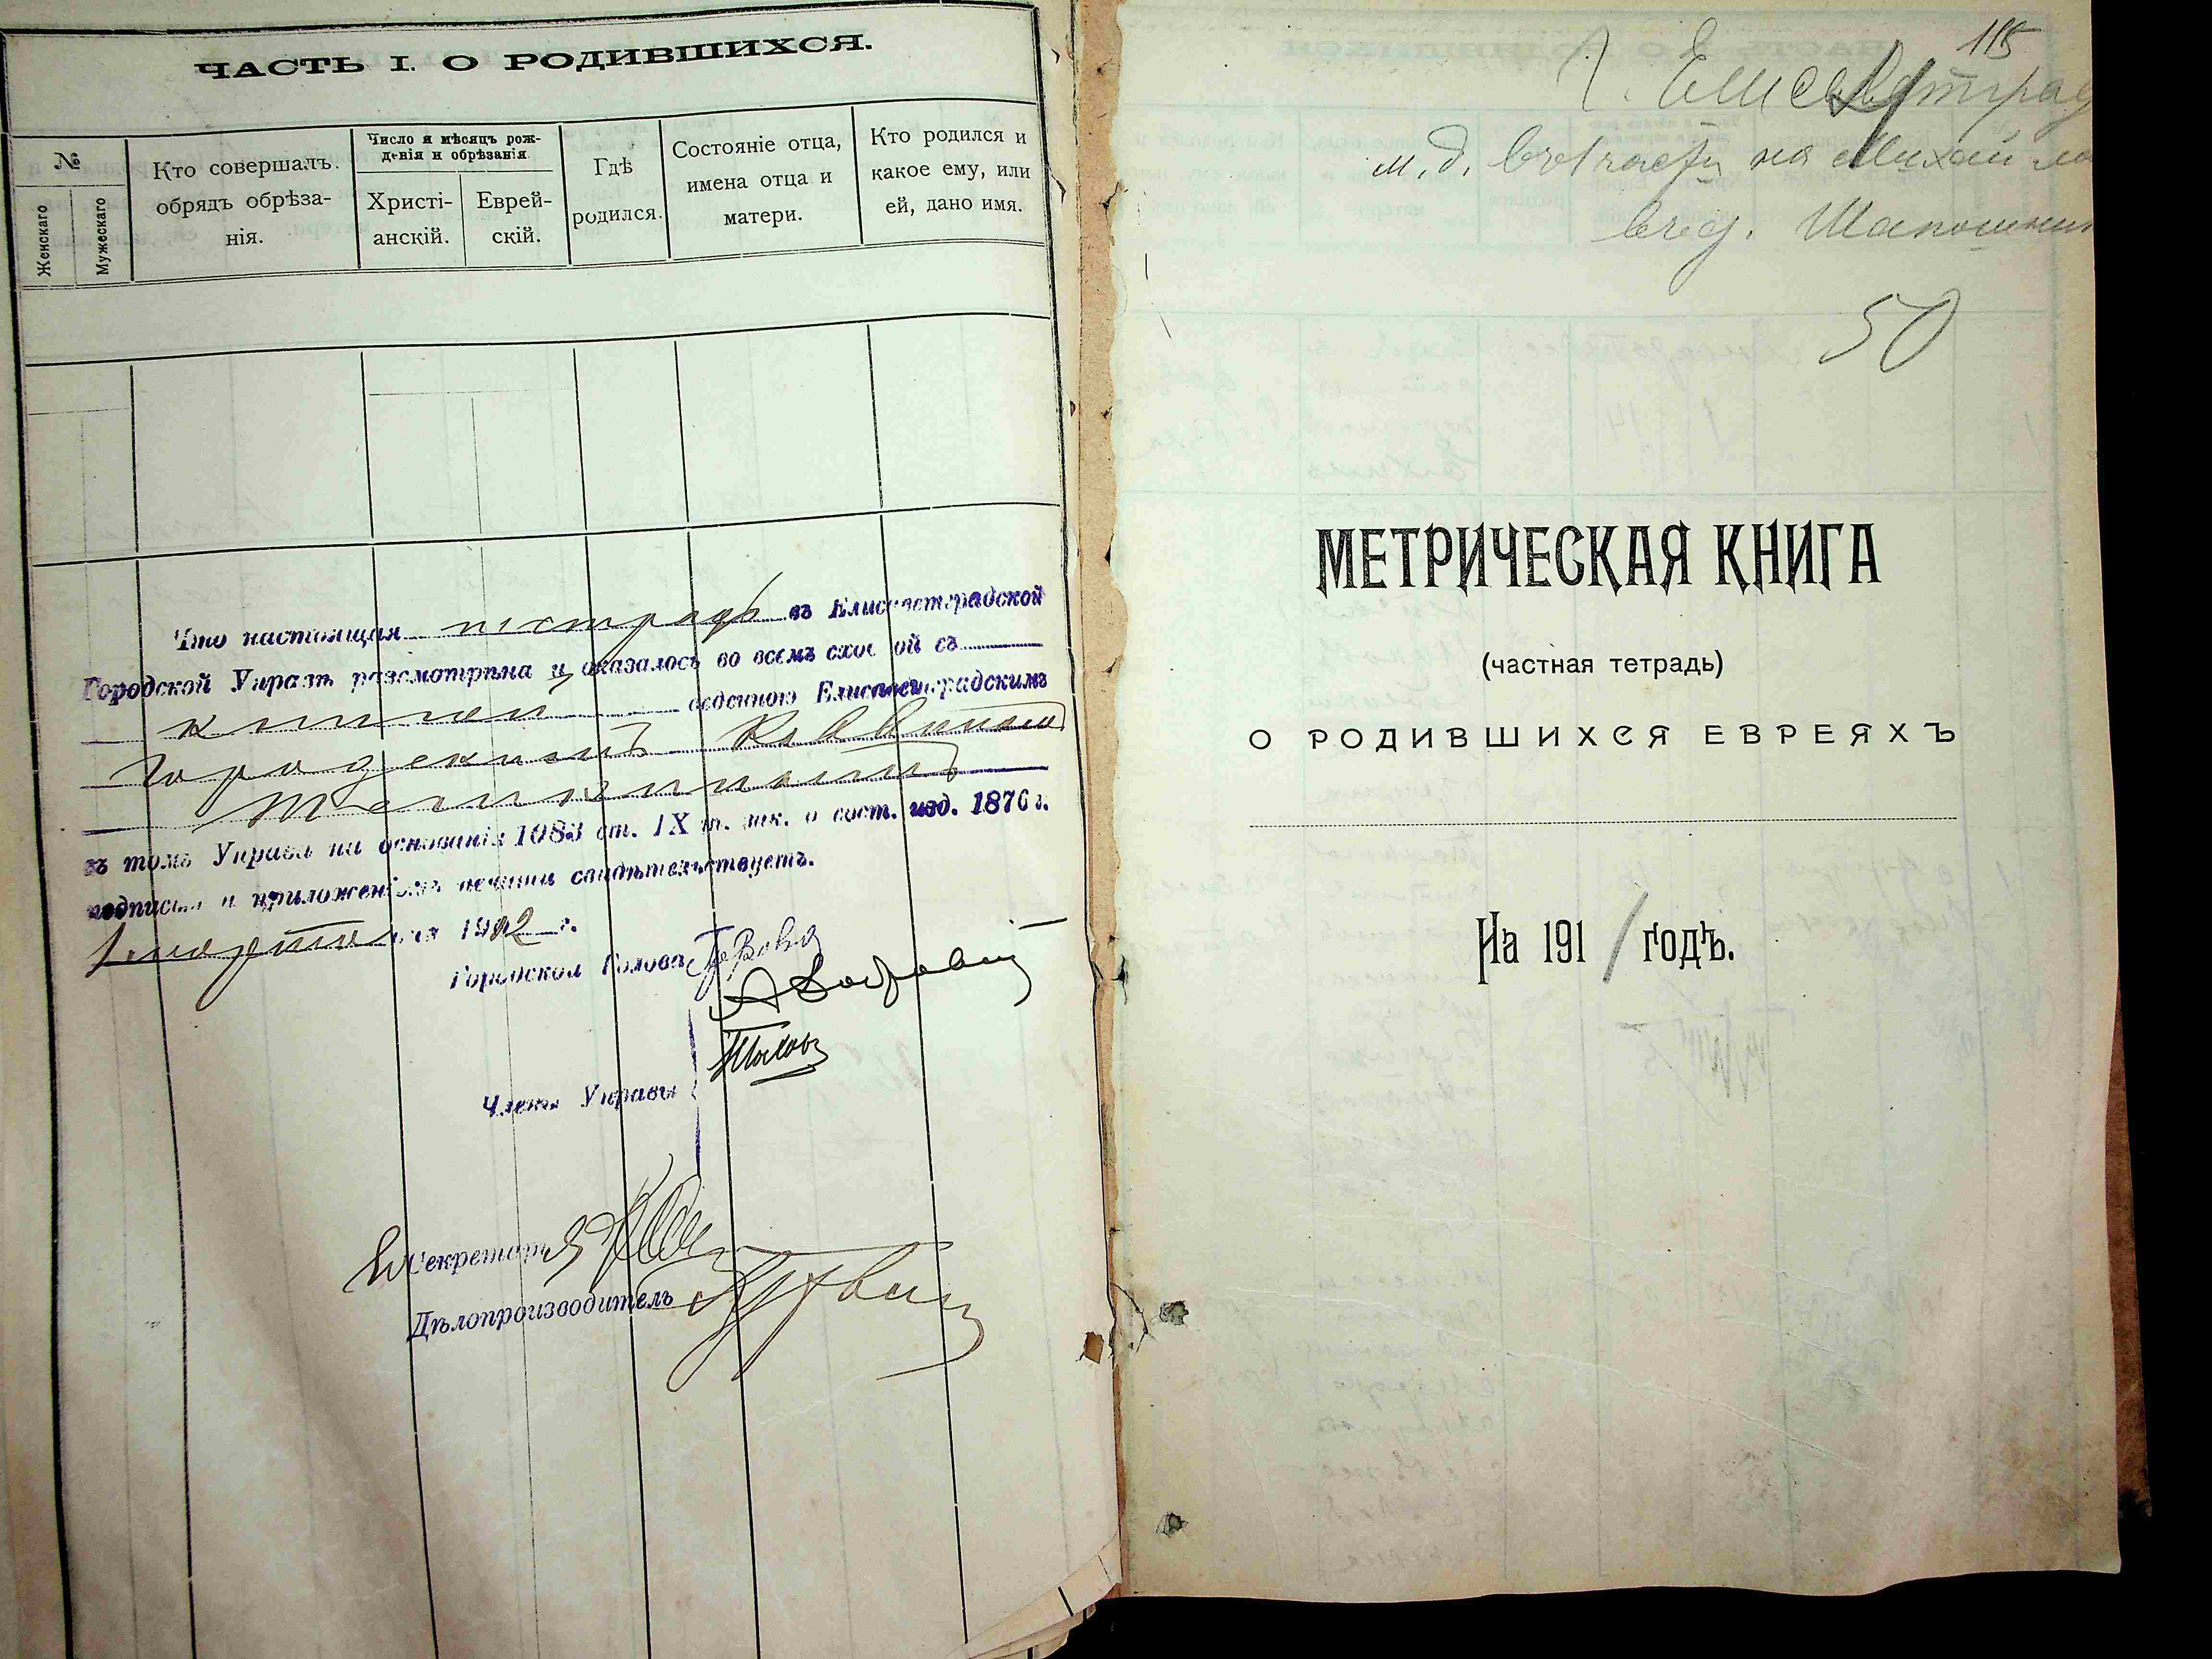 ЧАСТЬ I. О РОДИВШИХСЯ.
№
Женскаго
Мужескаго
Кто совершалъ
обрядъ обрѣза-
нія.
Число и мѣсяцъ рож-
денія и обрѣзанія.
Христі-
анскій.
Еврей-
скій.
Гдѣ
родился.
Состояніе отца,
имена отца и
матери.
Кто родился и
какое ему, или
ей, дано имя.
Что настоящая тетрадь въ Елисаветградской
Городской Управѣ разсмотрѣна и оказалось во всемъ сход ой съ
книгой веденною Елисаветградскимъ
Городскимъ Раввиномъ
въ томъ Управа на основаніи 1083 ст. IX т. зак. о сост. изд. 1876 г.
подписью и приложеніемъ печати свидѣтельствуетъ.
1 марта дня 1912 г.
Городской Голова
Члены Управы
Секретарь
Дѣлопроизводитель
115
г. Елисаветград
м. д. 1 части на Михайло
50
МЕТРИЧЕСКАЯ КНИГА
(частная тетрадь)
О РОДИВШИХСЯ ЕВРЕЯХЪ
На 1911 годъ.